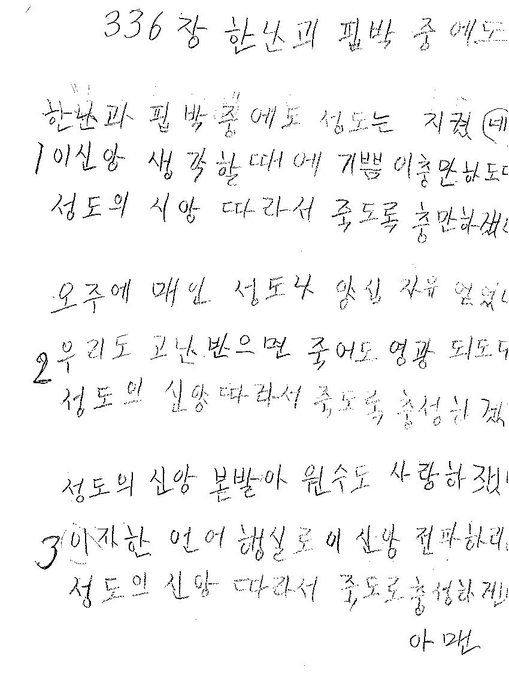 336장 한난괴 핍박 중에도
한난과 핍박중에도 성도는 지켰 네
1 이신앙 생각할때에 기쁨이충만하도다
성도의 시앙 따라서 죽도록 충만하겠
오주에 매인 성도나 양심 자유 얻었
2 우리도 고난받으면 죽어도 영광 되도다
성도의 신앙따라서 죽도록 충성하겠
성도의신앙 본발아 원수도 사랑하겠
3 이자한 언어 행실로 이 신앙 전파하리
성도의 신앙 따라서 죽도로충성하게
아맨